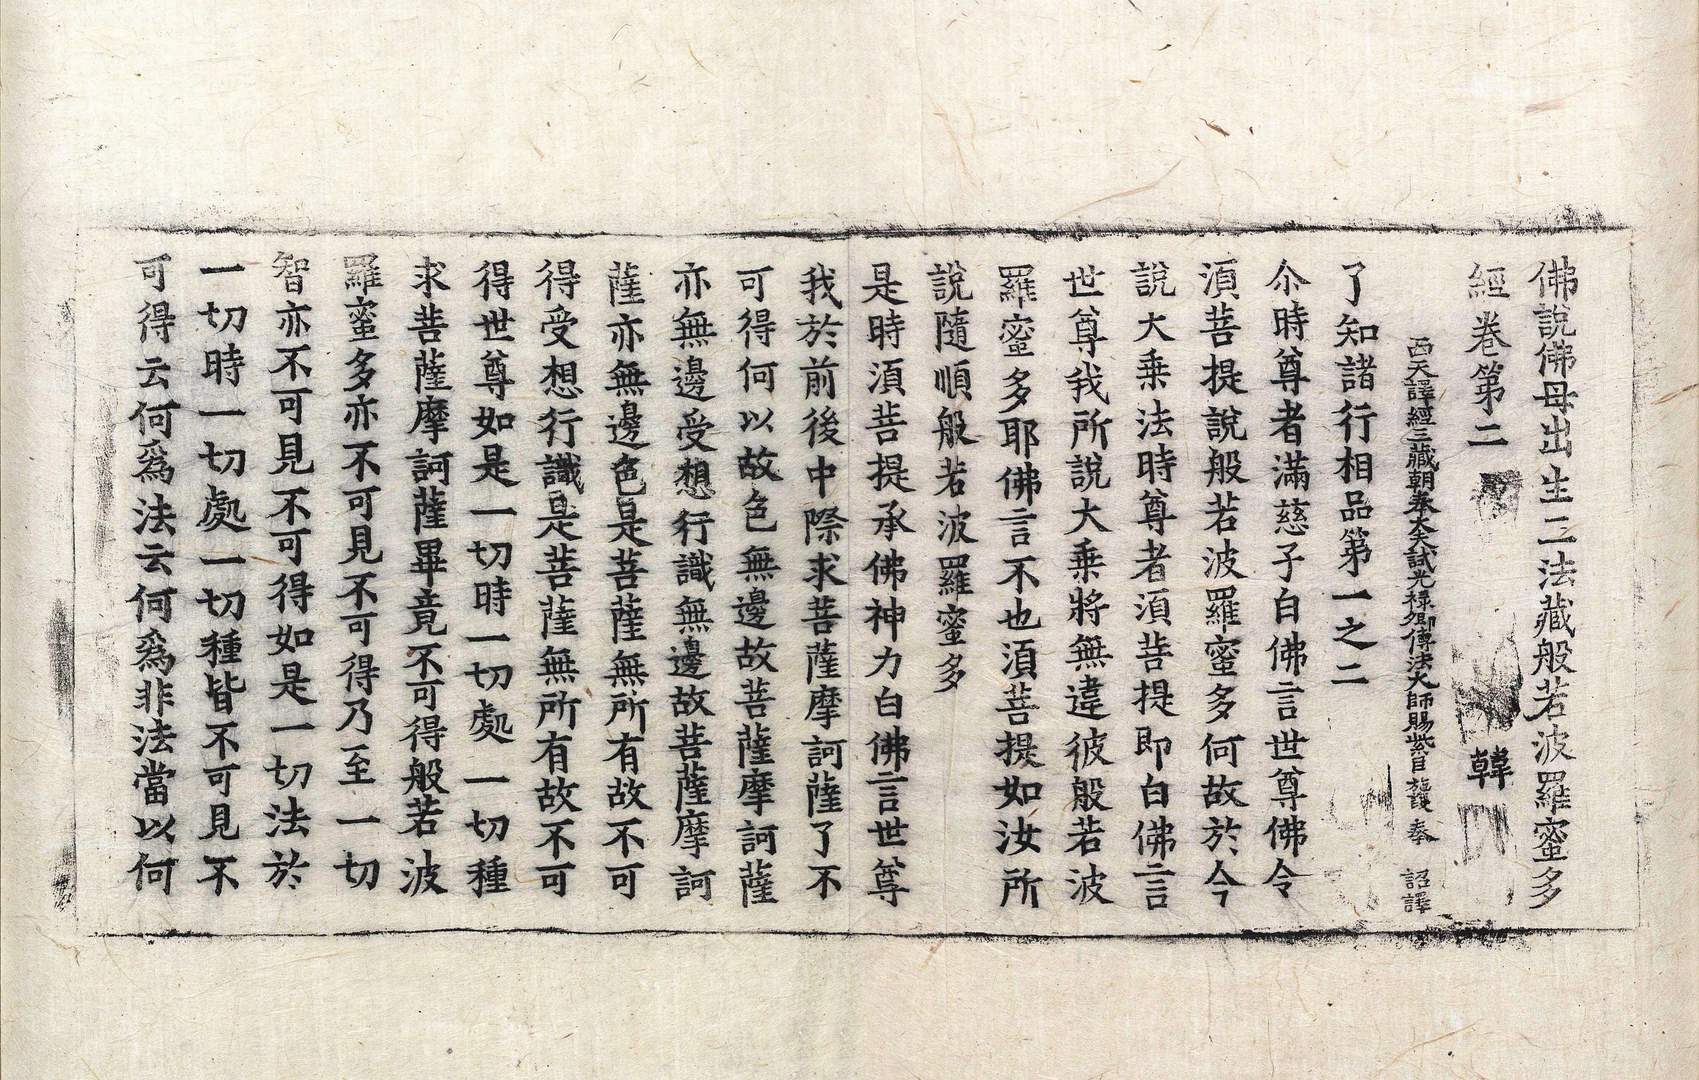 佛說佛母出生三法藏般若波羅蜜多
經卷第二 韓
西天譯經三藏朝奉大夫試光祿卿傳法大師賜紫臣施護奉 詔譯
了知諸行相品第一之二
尒時尊者滿慈子白佛言世尊佛令
須菩提說般若波羅蜜多何故於今
說大乗法時尊者須菩提即白佛言
世尊我所說大乗將無違彼般若波
羅蜜多耶佛言不也須菩提如汝所
說隨順般若波羅蜜多
是時須菩提承佛神力白佛言世尊
我於前後中際求菩薩摩訶薩了不
可得何以故色無邊故菩薩摩訶薩
亦無邊受想行識無邊故菩薩摩訶
薩亦無邊色是菩薩無所有故不可
得受想行識是菩薩無所有故不可
得世尊如是一切時一切處一切種
求菩薩摩訶薩畢竟不可得般若波
羅蜜多亦不可見不可得乃至一切
智亦不可見不可得如是一切法於
一切時一切處一切種皆不可見不
可得云何爲法云何爲非法當以何